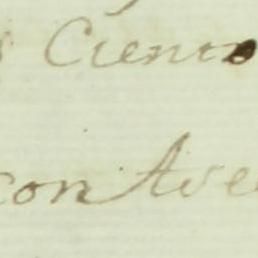 Ciento
con Ave